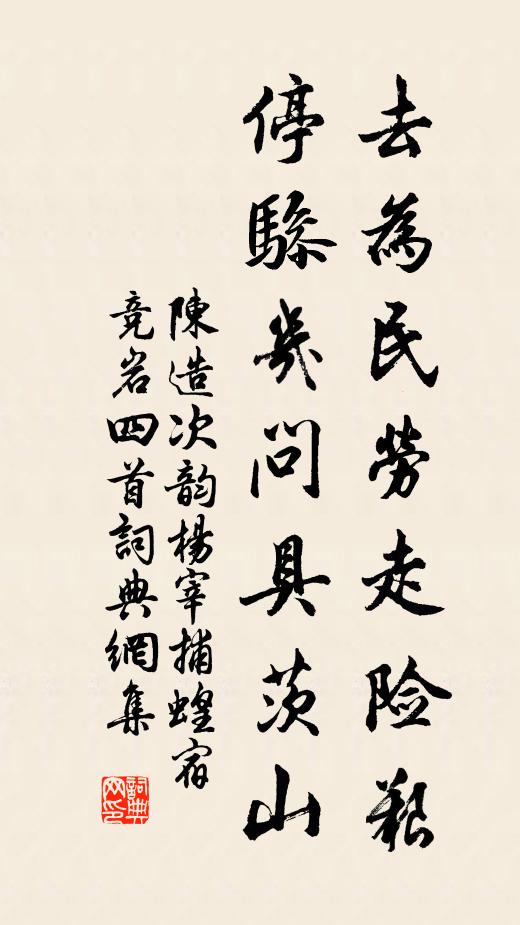 去為民勞走險艱
停驂幾問具茨山
陳造次韵楊宰捕蝗宿
竞岩四首詞典網集
詞典网印